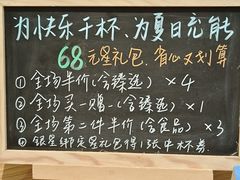 为快乐干杯、为夏日充能
68元星礼包，省心又划算
① 全场半价(含臻选) ×4
② 全场买一赠一(含臻选) ×1
③ 全场第二件半价(含食品) ×3
④ 银星绑定星礼包得1张中杯券